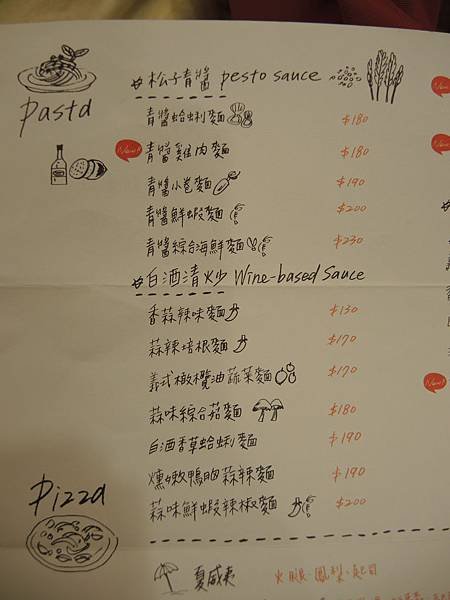 Pasta
#松子青醬 pesto sauce
青醬蛤蜊麵 $180
New!
青醬雞肉麵 $180
青醬小卷麵 $190
青醬鮮蝦麵 $200
青醬綜合海鮮麵 $230
#白酒清炒 Wine-based Sauce
香蒜辣味麵 $130
蒜辣培根麵 $170
義式橄欖油蔬菜麵 $170
蒜味綜合菇麵 $180
白酒香草蛤蜊麵 $190
燻嫩鴨胸蒜辣麵 $190
蒜味鮮蝦辣椒麵 $200
Pizza
夏威夷 火腿、鳳梨、起司